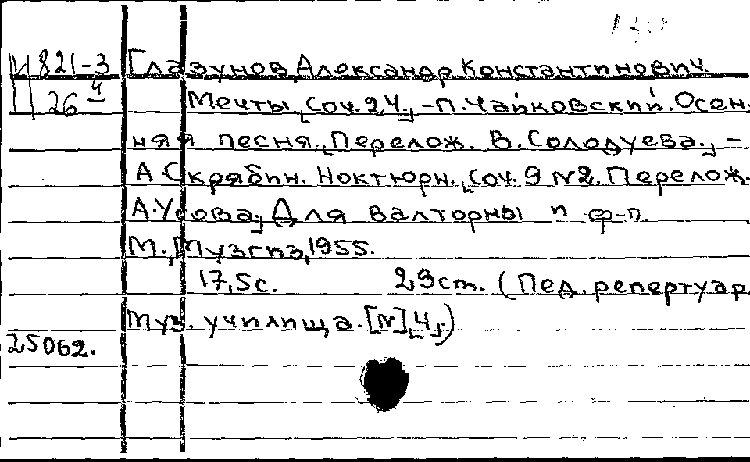 И 821-3 Глазунов, Александр Константинович.
Ц 26 4 Мечты, соч. 24, -П. Чайковский. Осен-
няя песня. Перелож. В. Солодуева., -
А. Скрябин. Ноктюрн., соч. 9 №2. Перелож.
А. Усова, Для валторны и ф-п.
М., Музгиз, 1955.
17,5с. 29ст. (Пед. репертуар
Муз. училища. [№] 4,)
25062.